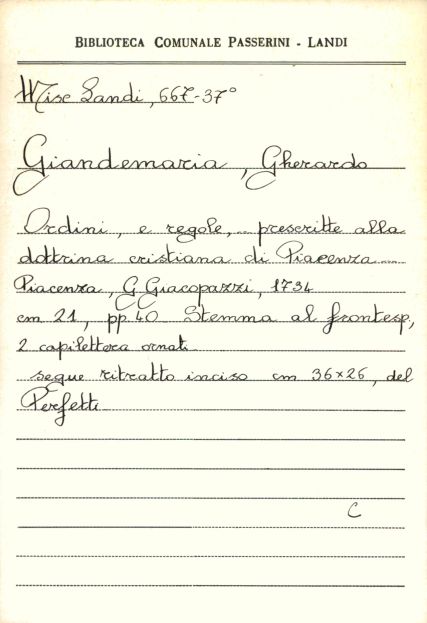 BIBLIOTECA COMUNALE PASSERINI - LANDI
Misc Landi, 667-37°
Giandemaria, Gherardo
Ordini, e regole, prescritte alla
dottrina cristiana di Piacenza
Piacenza, G Giacopazzi, 1734
cm 21, pp. 40 Stemma al frontesp,
2 capilettera ornati
segue ritratto inciso cm 36×26, del
Perfetti
C